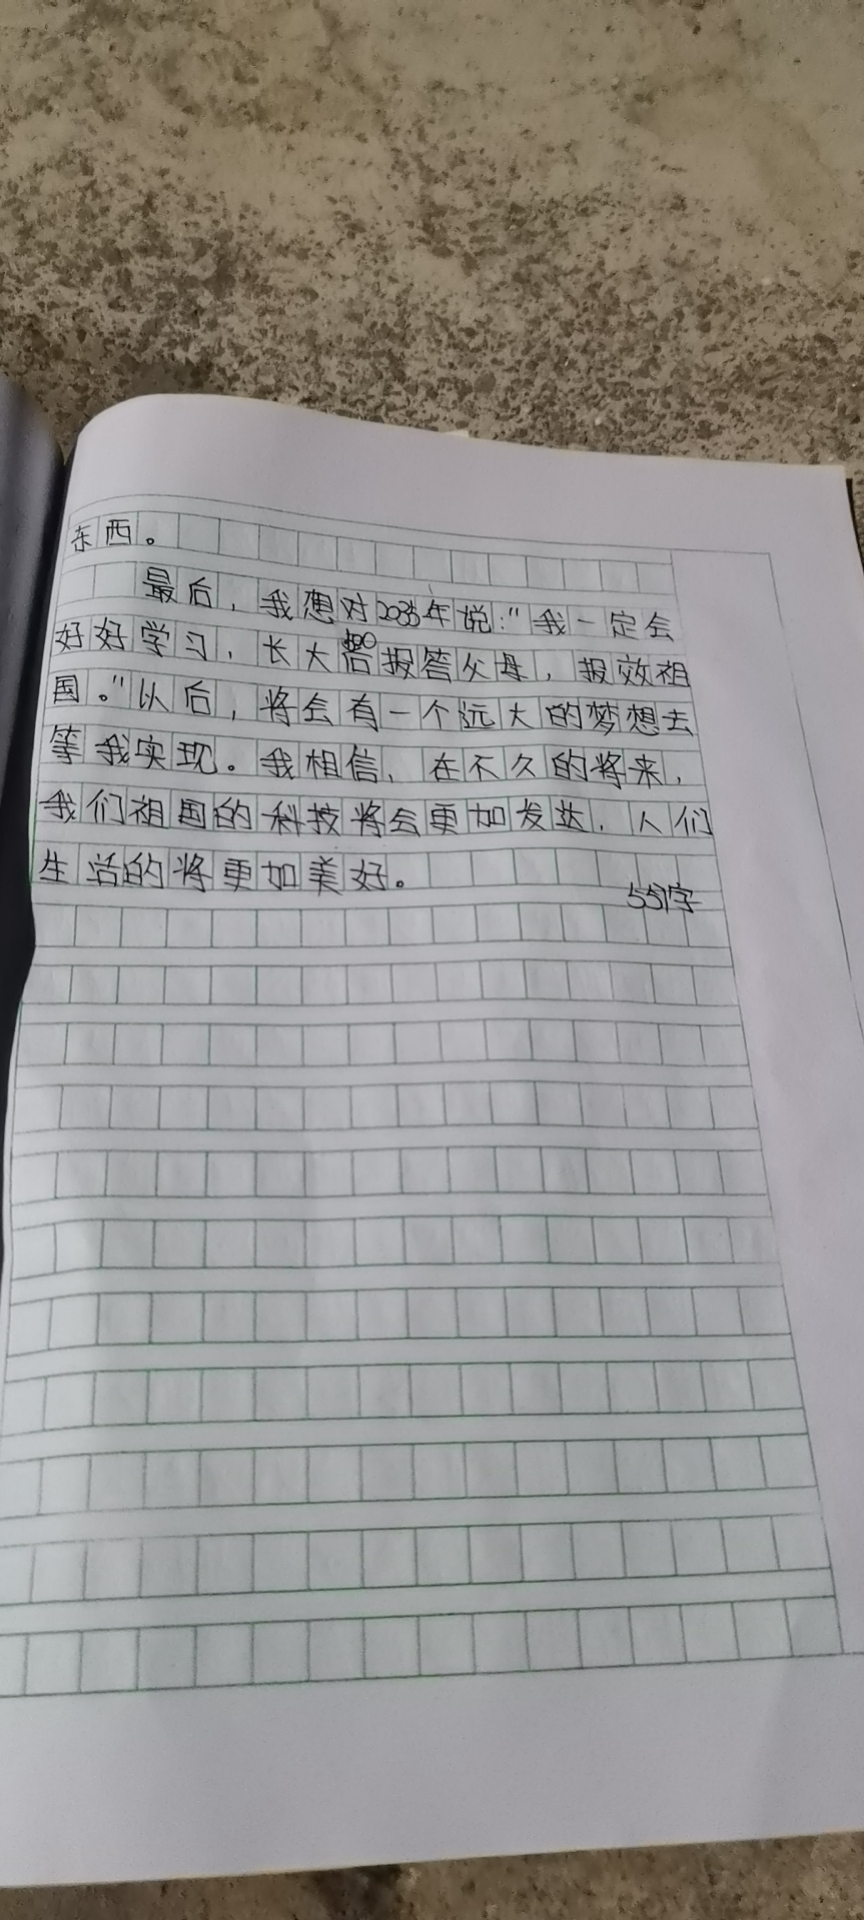 东西。
最后，我想对2035年说："我一定会
好好学习，长大后报答父母，报效祖
国。"以后，将会有一个远大的梦想去
等我实现。我相信，在不久的将来，
我们祖国的科技将会更加发达，人们
生活的将更加美好。
557字